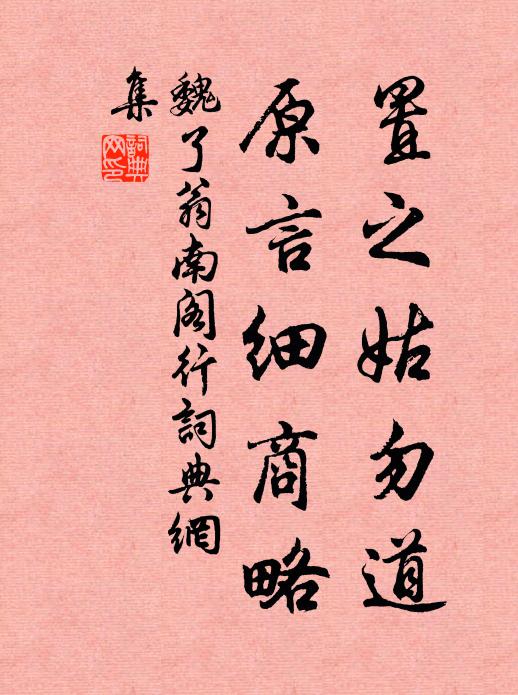 置之姑勿道
原言细商略
魏了翁南阁行詞典網
集
詞典
网印